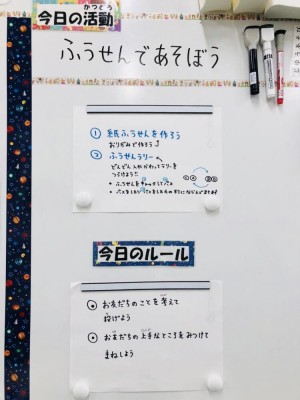 今日の活動
かつどう
ふうせんであそぼう
① 紙ふうせんを作ろう
おりがみで作ろう
② ふうせんラリー
どんどん入れかわってラリーを
つづけよう!!
・ふうせんをキャッチしてパス
今日のルール
・お友だちのことを考えて
投げよう
・お友だちの上手なところをみつけて
まねしよう